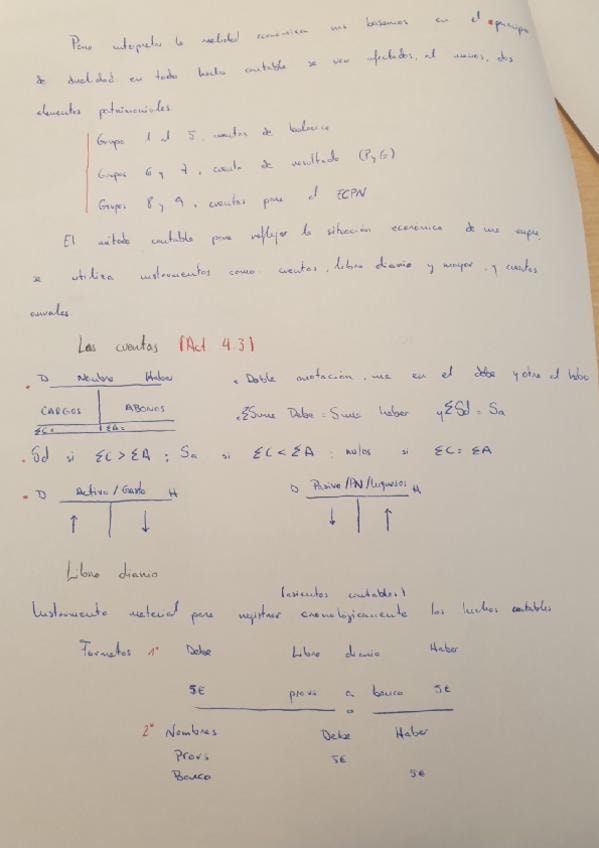 Para interpretar la realidad económica nos basamos en el principio
de dualidad: en todo hecho contable se ven afectados, al menos, dos
elementos patrimoniales.
Grupo 1 al 5, cuentas de balance
Grupos 6 y 7, cuenta de resultado (PyG)
Grupos 8 y 9, cuentas para el ECPN
El método contable para reflejar la situación económica de una
se utiliza instrumentos como: cuentas, libro diario y mayor, y cuentas
anuales.
Las cuentas (Act 4.3)
D Nombre Haber
CARGOS ABONOS
ΣC= ΣA=
Doble anotación, una en el debe y otra al haber
ΣSuma Debe = Suma haber y ΣSd = Sa
Sd si ΣC > ΣA ; Sa si ΣC < ΣA ; nulos si ΣC = ΣA
D Activo / Gasto H
↑ ↓
D Pasivo / PN / Ingresos H
↓ ↑
Libro diario
(asientos contables)
Instrumento material para registrar cronológicamente los hechos contables
Formatos 1º Debe Libro diario Haber
5€ provs a banco 5€
2º Nombres Debe Haber
Provs 5€
Banco 5€